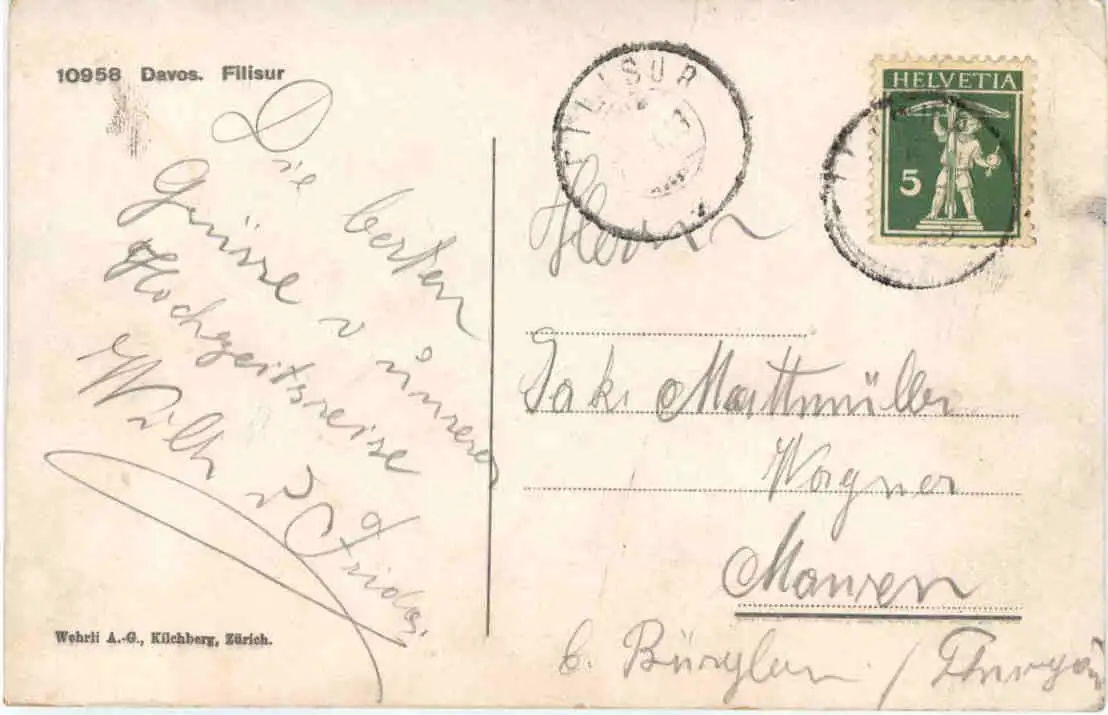 10958 Davos. Filisur
Die besten
Grüsse v unserer
Hochzeitsreise
Wilh u Frida.
Wehrli A.-G., Kilchberg, Zürich.
FILISUR
HELVETIA
5
Herrn
Jak. Mattmüller
Wagner
Mauren
b. Bürglen / Thurgau